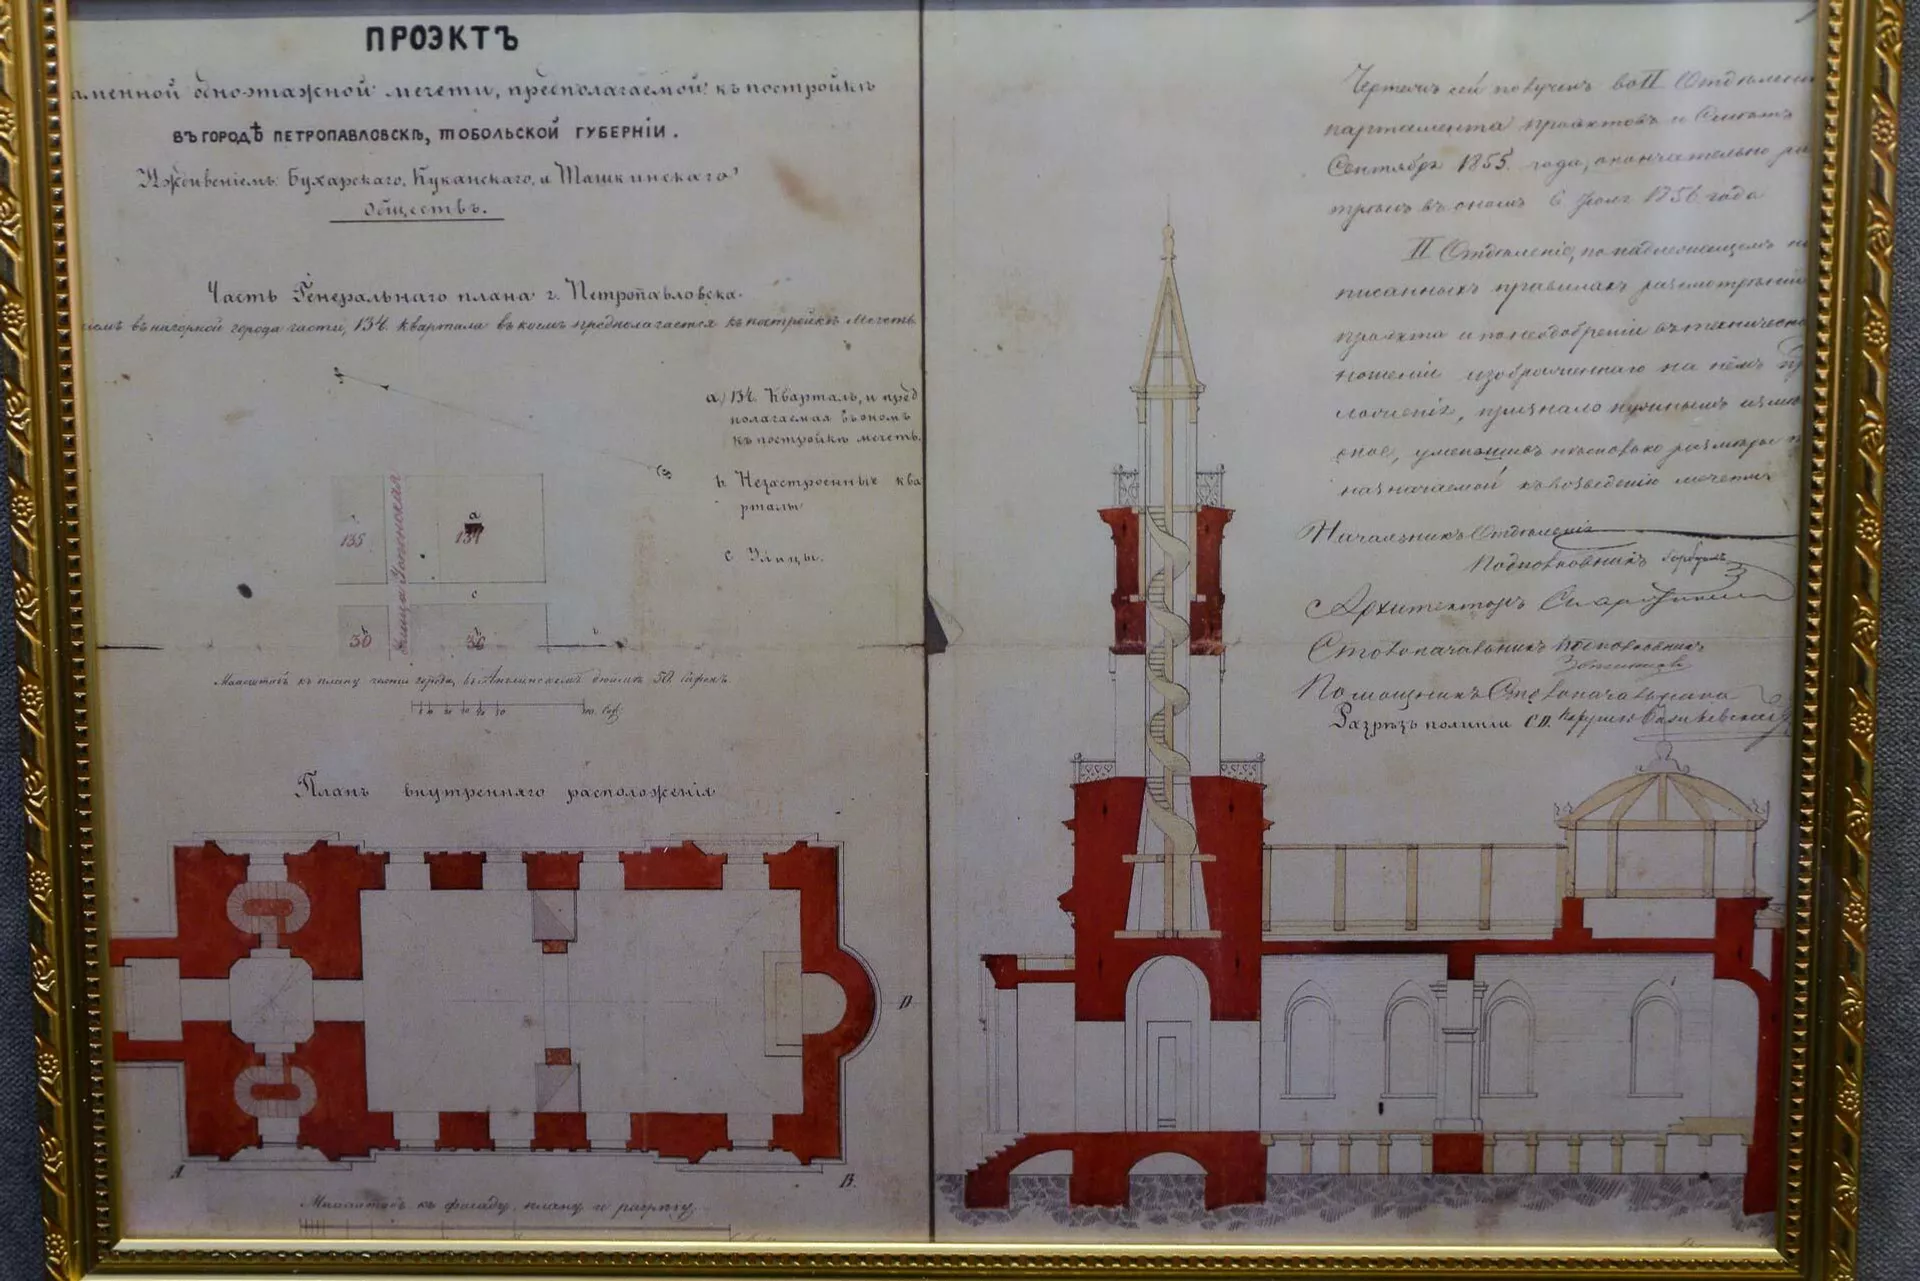 ПРОЭКТЪ
аменной одноэтажной мечети, предполагаемой къ постройкѣ
ВЪ ГОРОДѢ ПЕТРОПАВЛОВСКѢ, ТОБОЛЬСКОЙ ГУБЕРНІИ.
Иждивеніемъ Бухарскаго, Куканскаго, и Ташкинскаго
Обществъ.
Часть Генеральнаго плана г. Петропавловска
въ нагорной города части, 134 квартала въ коемъ предполагается къ постройкѣ Мечеть
а) 134 Кварталъ, и пред
полагаемая въ ономъ
къ постройкѣ мечеть.
b Незастроенныхъ ква
рталы
с Улицы.
а
135
134
Улица
с
b
b
36
Масштабъ къ плану части города, въ Англинскомъ дюймѣ 50 Сажен.
100 Саж
Планъ внутренняго расположенія
D
A
B.
Масштабъ къ фасаду, плану и разрѣзу
Чертежъ сей полученъ во II Отдѣлені
партамента проэктовъ и Смѣтъ
Сентября 1855 года, окончательно ра
трѣнъ въ ономъ 6 1856 года
II Отдѣленіе, по надлежащемъ
писанныхъ правилахъ разсмотрѣніи
проэкта и по неодобреніи въ техническо
ношеніи изображеннаго на нёмъ
ложенія, признало нужнымъ
оное, уменьшивъ нѣсколько размѣры
назначаемой къ возведенію мечети
Начальникъ Отдѣленія
Подполковникъ
Архитекторъ
Столоначальникъ
Помощникъ Столоначальника
Разрѣзъ по линіи С D.